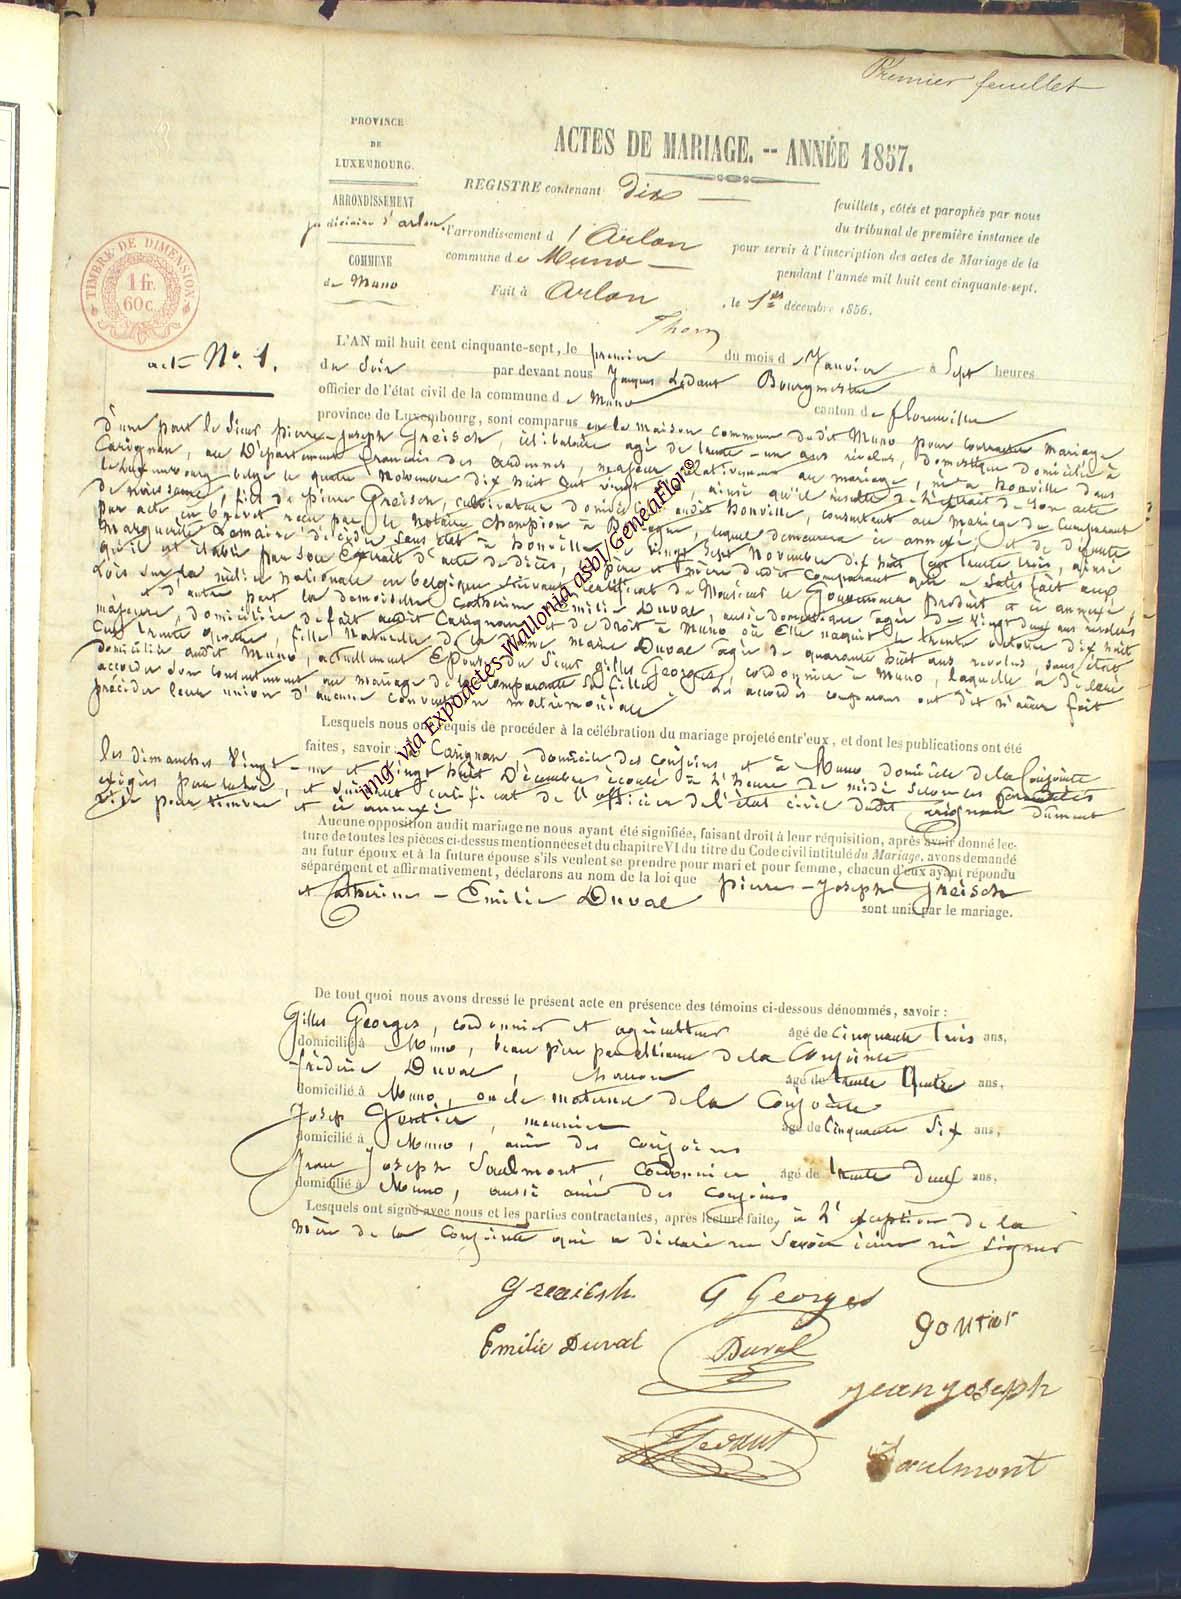 Premier feuillet
PROVINCE
DE
LUXEMBOURG.
ARRONDISSEMENT
judiciaire d'arlon.
COMMUNE
de Muno
TIMBRE DE DIMENSION
1 fr.
60 c.
ACTES DE MARIAGE. -- ANNÉE 1857.
REGISTRE contenant Dix
feuillets, côtés et paraphés par nous
du tribunal de première instance de
l'arrondissement d'Arlon
pour servir à l'inscription des actes de Mariage de la
commune de Muno
pendant l'année mil huit cent cinquante-sept.
Fait à Arlon, le 1er décembre 1856.
acte No. 1.
L'AN mil huit cent cinquante-sept, le premier du mois de Janvier à Sept heures
du Soir par devant nous Jacques Ledant Bourgmestre
officier de l'état civil de la commune de Muno canton de florenville
province de Luxembourg, sont comparus en la maison commune dudit Muno pour contracter mariage
d'une part le Sieur Pierre-Joseph Greisch, célibataire agé de trente-un ans révolus, domestique domicilié à
Carignan, au Département français des ardennes, majeur relativement au mariage, né à honville dans
le Luxembourg belge le quatre Novembre dix huit cent vingt cinq, ainsi qu'il résulte de l'extrait de son acte
de naissance, fils de Pierre Greisch, cultivateur domicilié audit honville, consentant au mariage du Comparant
par acte en brevet reçu par le notaire Champion à Bastogne, lequel demeurera ci annexé, et de défunte
Marguerite Lemaire, décédée sans état à honville le vingt Sept Novembre dix huit Cent trente trois, ainsi
qu'il est établi par son Extrait d'acte de décès, père et mère dudit Comparant qui a satisfait aux
Lois sur la milice nationale en belgique suivant certificat de Monsieur le Gouverneur produit et ci annexé,
et d'autre part la demoiselle Catherine Emilie Duval, aussi domestique agée de vingt deux ans révolus
majeure, domiciliée de fait audit Carignan et de droit à Muno où Elle naquit le trente octobre dix huit
Cent trente quatre, fille Naturelle de la Dame Marie Duval agée de quarante huit ans révolus, sans état
domiciliée audit Muno, actuellement Epouse du Sieur gilles Georges, cordonnier à Muno, laquelle a déclaré
accorder son consentement au mariage de la comparante sa fille. Les accordés comparans ont dit n'avoir fait
précéder leur union d'aucune convention matrimoniale
Lesquels nous ont requis de procéder à la célébration du mariage projeté entr'eux, et dont les publications ont été
faites, savoir: à Carignan, domicile des conjoins et à Muno domicile de la Conjointe
les dimanches Vingt-un et vingt huit Décembre écoulé à l'heure de midi selon les formalités
exigées par la loi, et suivant certificat de l'officier de l'état civil dudit Carignan dûment
visé pour timbre et ci annexé
Aucune opposition audit mariage ne nous ayant été signifiée, faisant droit à leur réquisition, après avoir donné lec-
ture de toutes les pièces ci-dessus mentionnées et du chapitre VI du titre du Code civil intitulé du Mariage, avons demandé
au futur époux et à la future épouse s'ils veulent se prendre pour mari et pour femme, chacun d'eux ayant répondu
séparément et affirmativement, déclarons au nom de la loi que Pierre-Joseph Greisch
et Catherine-Emilie Duval sont unis par le mariage.
De tout quoi nous avons dressé le présent acte en présence des témoins ci-dessous dénommés, savoir:
Gilles Georges, cordonnier et agriculteur âgé de Cinquante trois ans,
domicilié à Muno, beau père par alliance de la Conjointe
frédéric Duval, maçon âgé de trente quatre ans,
domicilié à Muno, oncle maternel de la Conjointe
Josep Gontier, meunier âgé de Cinquante Six ans,
domicilié à Muno, ami des conjoins
Jean Joseph Saulmont, Cordonnier âgé de trente deux ans,
domicilié à Muno, aussi ami des conjoins
Lesquels ont signé avec nous et les parties contractantes, après lecture faite, à l'exception de la
mère de la Conjointe qui a déclaré ne Savoir écrire ni signer
Greisch G Georges gontier
Emilie Duval Duval
jean joseph
JLedant Saulmont
img. via Exponactes-Wallonia asbl/GeneaFlor©